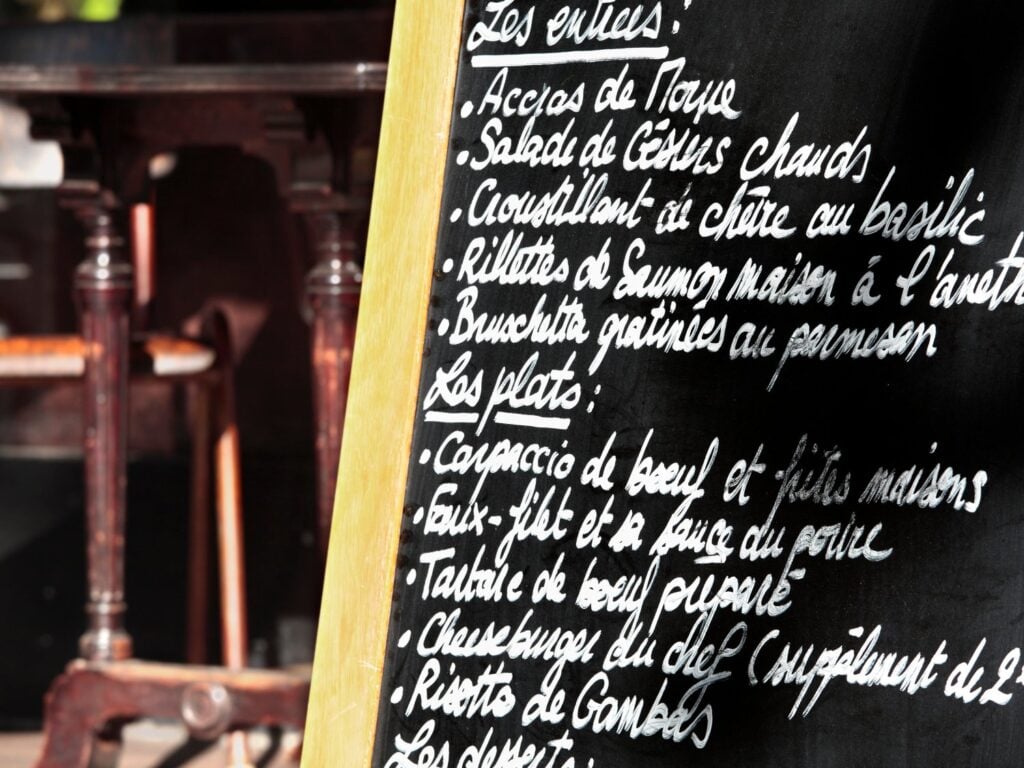 Les entrées :
• Accras de Morue
• Salade de Gésiers chauds
• Croustillant de chèvre au basilic
• Rillettes de Saumon maison à l'aneth
• Bruschetta gratinées au parmesan
Les plats :
• Carpaccio de boeuf et frites maisons
• Faux-filet et sa sauce du poivre
• Tartare de boeuf préparé
• Cheeseburger du chef (supplément de 2
• Risotto de Gambas
Les desserts :